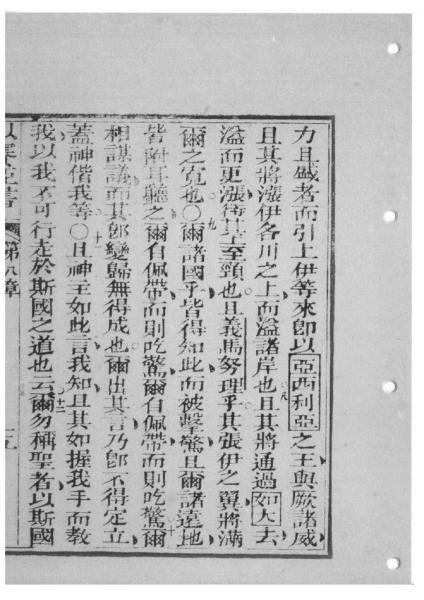 力且盛者而引上伊等來卽以亞西利亞之王與厥諸威
且其將漲伊各川之上而溢諸岸也八且其將通過如大去
溢而更漲待其至頸也且義馬努理乎其張伊之翼將滿
爾之寬也〇九爾諸國乎皆得知此而被擊驚且爾諸遠地
皆附耳聽之爾自佩帶而則吃驚爾自佩帶而則吃驚十爾
相謀議而其卽變歸無得成也爾出其言乃卽不得定立
蓋神偕我等〇十一且神主如此言我知且其如握我手而教
我以我不可行走於斯國之道也云十二爾勿稱聖者以斯國
第八章